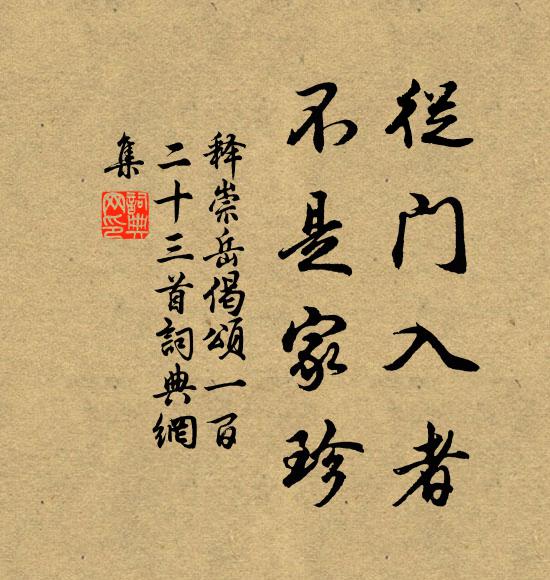 從門入者
不是家珍
释崇岳偈頌一百
二十三首詞典網
集
詞典網印